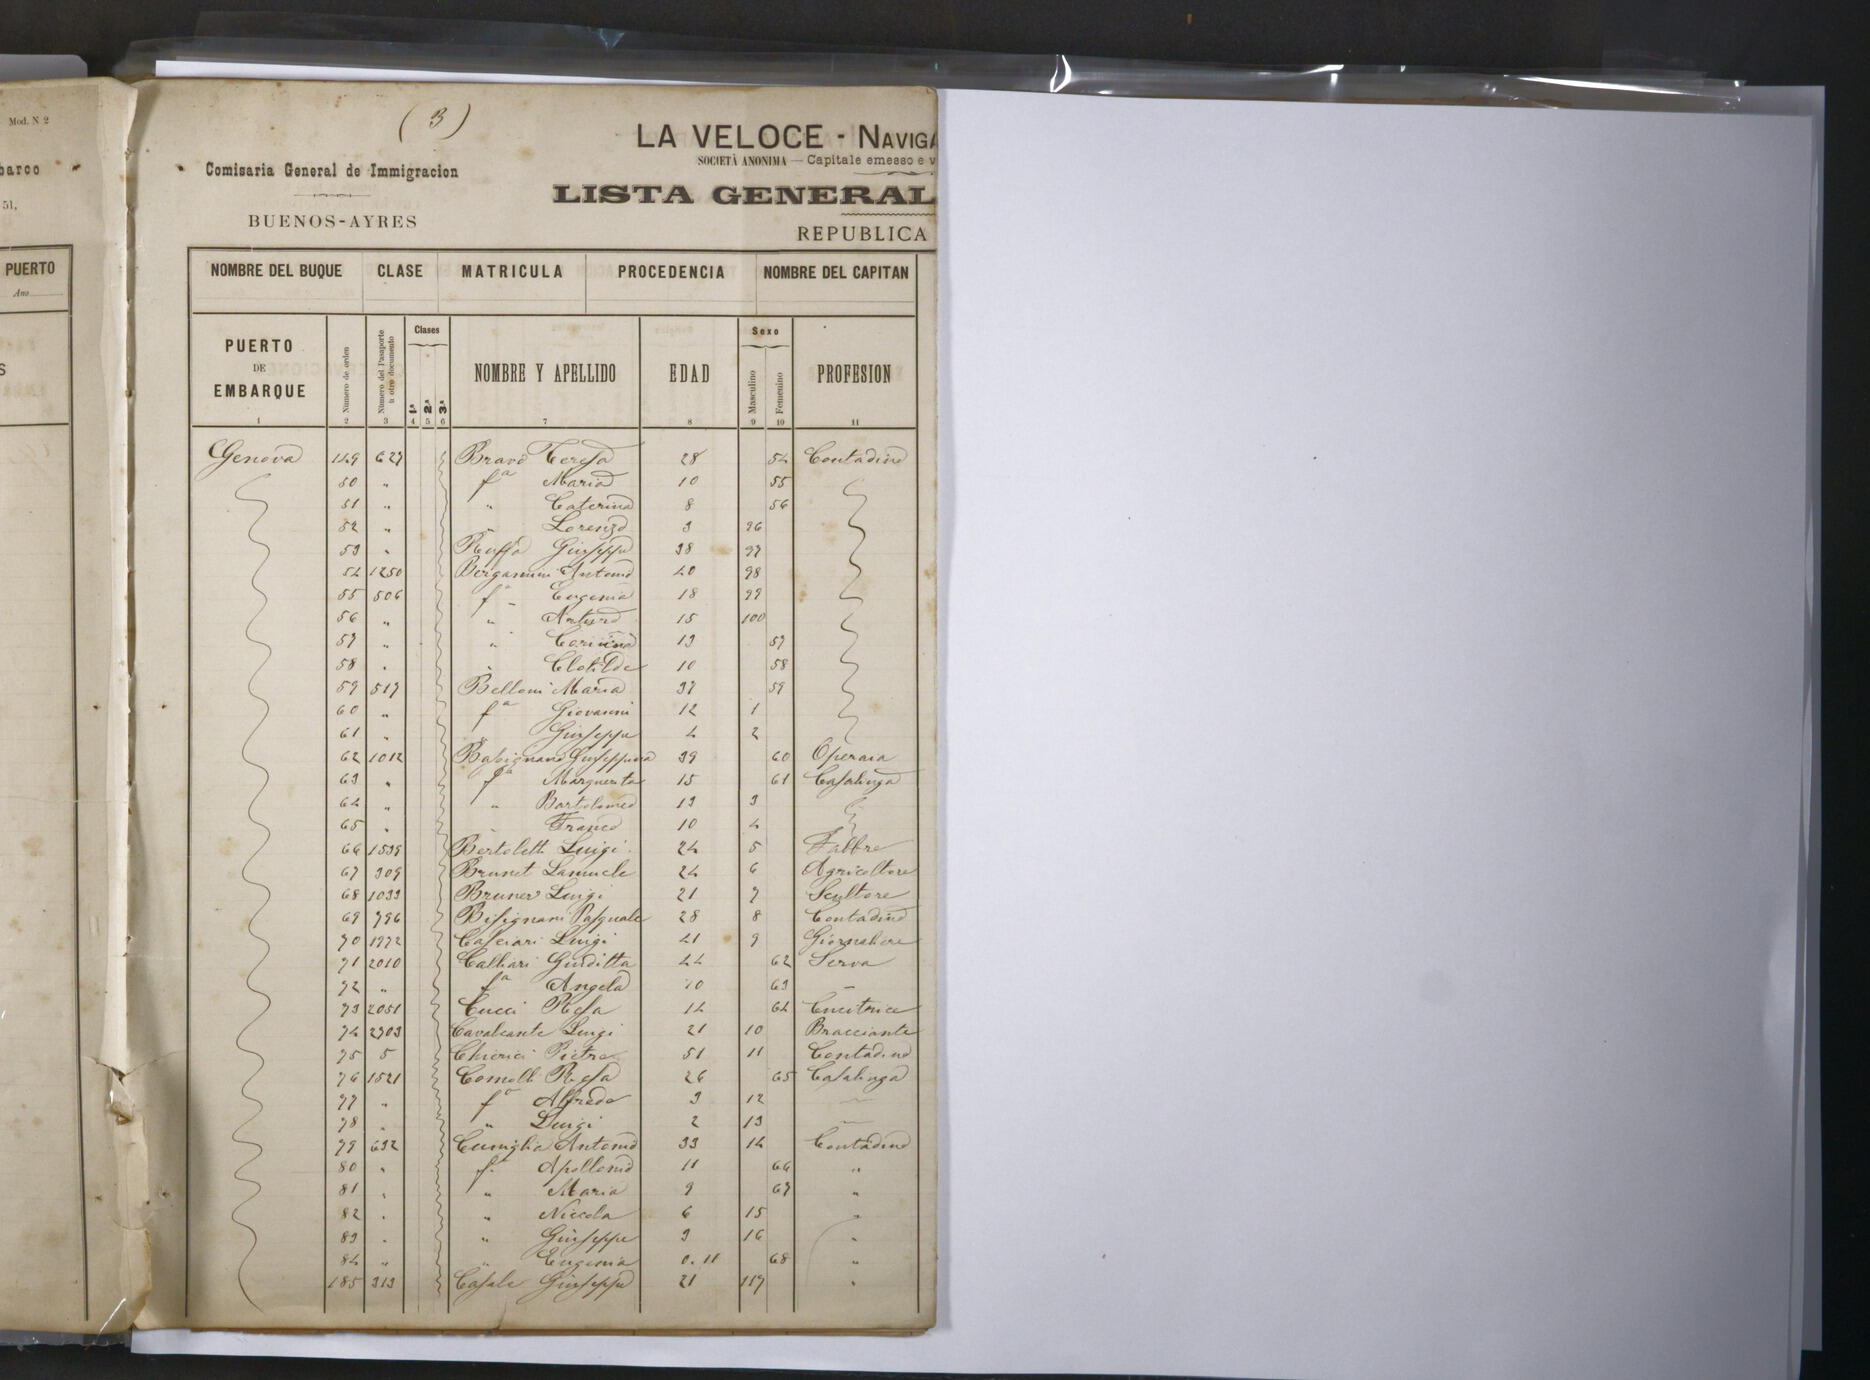 Mod. N 2
barco
51,
PUERTO
Ano
S
( 3 )
LA VELOCE - NAVIGA
SOCIETÀ ANONIMA — Capitale emesso e v
Comisaria General de Immigracion
LISTA GENERAL
BUENOS-AYRES
REPUBLICA
NOMBRE DEL BUQUE CLASE MATRICULA PROCEDENCIA NOMBRE DEL CAPITAN
PUERTO DE EMBARQUE Número de orden Número del Pasaporte ú otro documento Clases 1ª 2ª 3ª NOMBRE Y APELLIDO EDAD Sexo Masculino Femenino PROFESION
1 2 3 4 5 6 7 8 9 10 11
Genova 149 627 Bravo Teresa 28 54 Contadino
50 " fa Maria 10 55
51 " " Caterina 8 56
52 " " Lorenzo 3 96
53 " Giuseppe 38 97
54 1250 Bergamini Antonio 40 98
55 506 f " Eugenio 18 99
56 " " Arturo 15 100
57 " " Corinna 13 57
58 " " Clotilde 10 58
59 517 Belloni Maria 37 59
60 " fa Giovanni 12 1
61 " " Giuseppe 4 2
62 1012 Giuseppina 39 60 Operaia
63 " fa Margherita 15 61 Casalinga
64 " " Bartolomeo 13 3
65 " " Franco 10 4
66 1539 Bertoletti Luigi 24 5 Fabbro
67 309 Brunet Samuele 24 6 Agricoltore
68 1033 Bruner Luigi 21 7 Scultore
69 796 Bisignani Pasquale 28 8 Contadino
70 1972 Casciari Luigi 41 9 Giornaliere
71 2010 Calliari Giuditta 44 62 Serva
72 " fa Angela 10 63 –
73 2051 Cucci Rosa 14 64 Cucitrice
74 2703 Cavalcante Luigi 21 10 Bracciante
75 5 Chierici Pietro 51 11 Contadino
76 1521 Comolli Rosa 26 65 Casalinga
77 " fo Alfredo 3 12 –
78 " " Luigi 2 13 –
79 632 Cuniglio Antonio 33 14 Contadino
80 " f. Apollonia 11 66 "
81 " " Maria 9 67 "
82 " " Niccola 6 15 "
83 " " Giuseppe 3 16 "
84 " " Eugenia 0.11 68 "
185 313 Casale Giuseppe 21 117 "